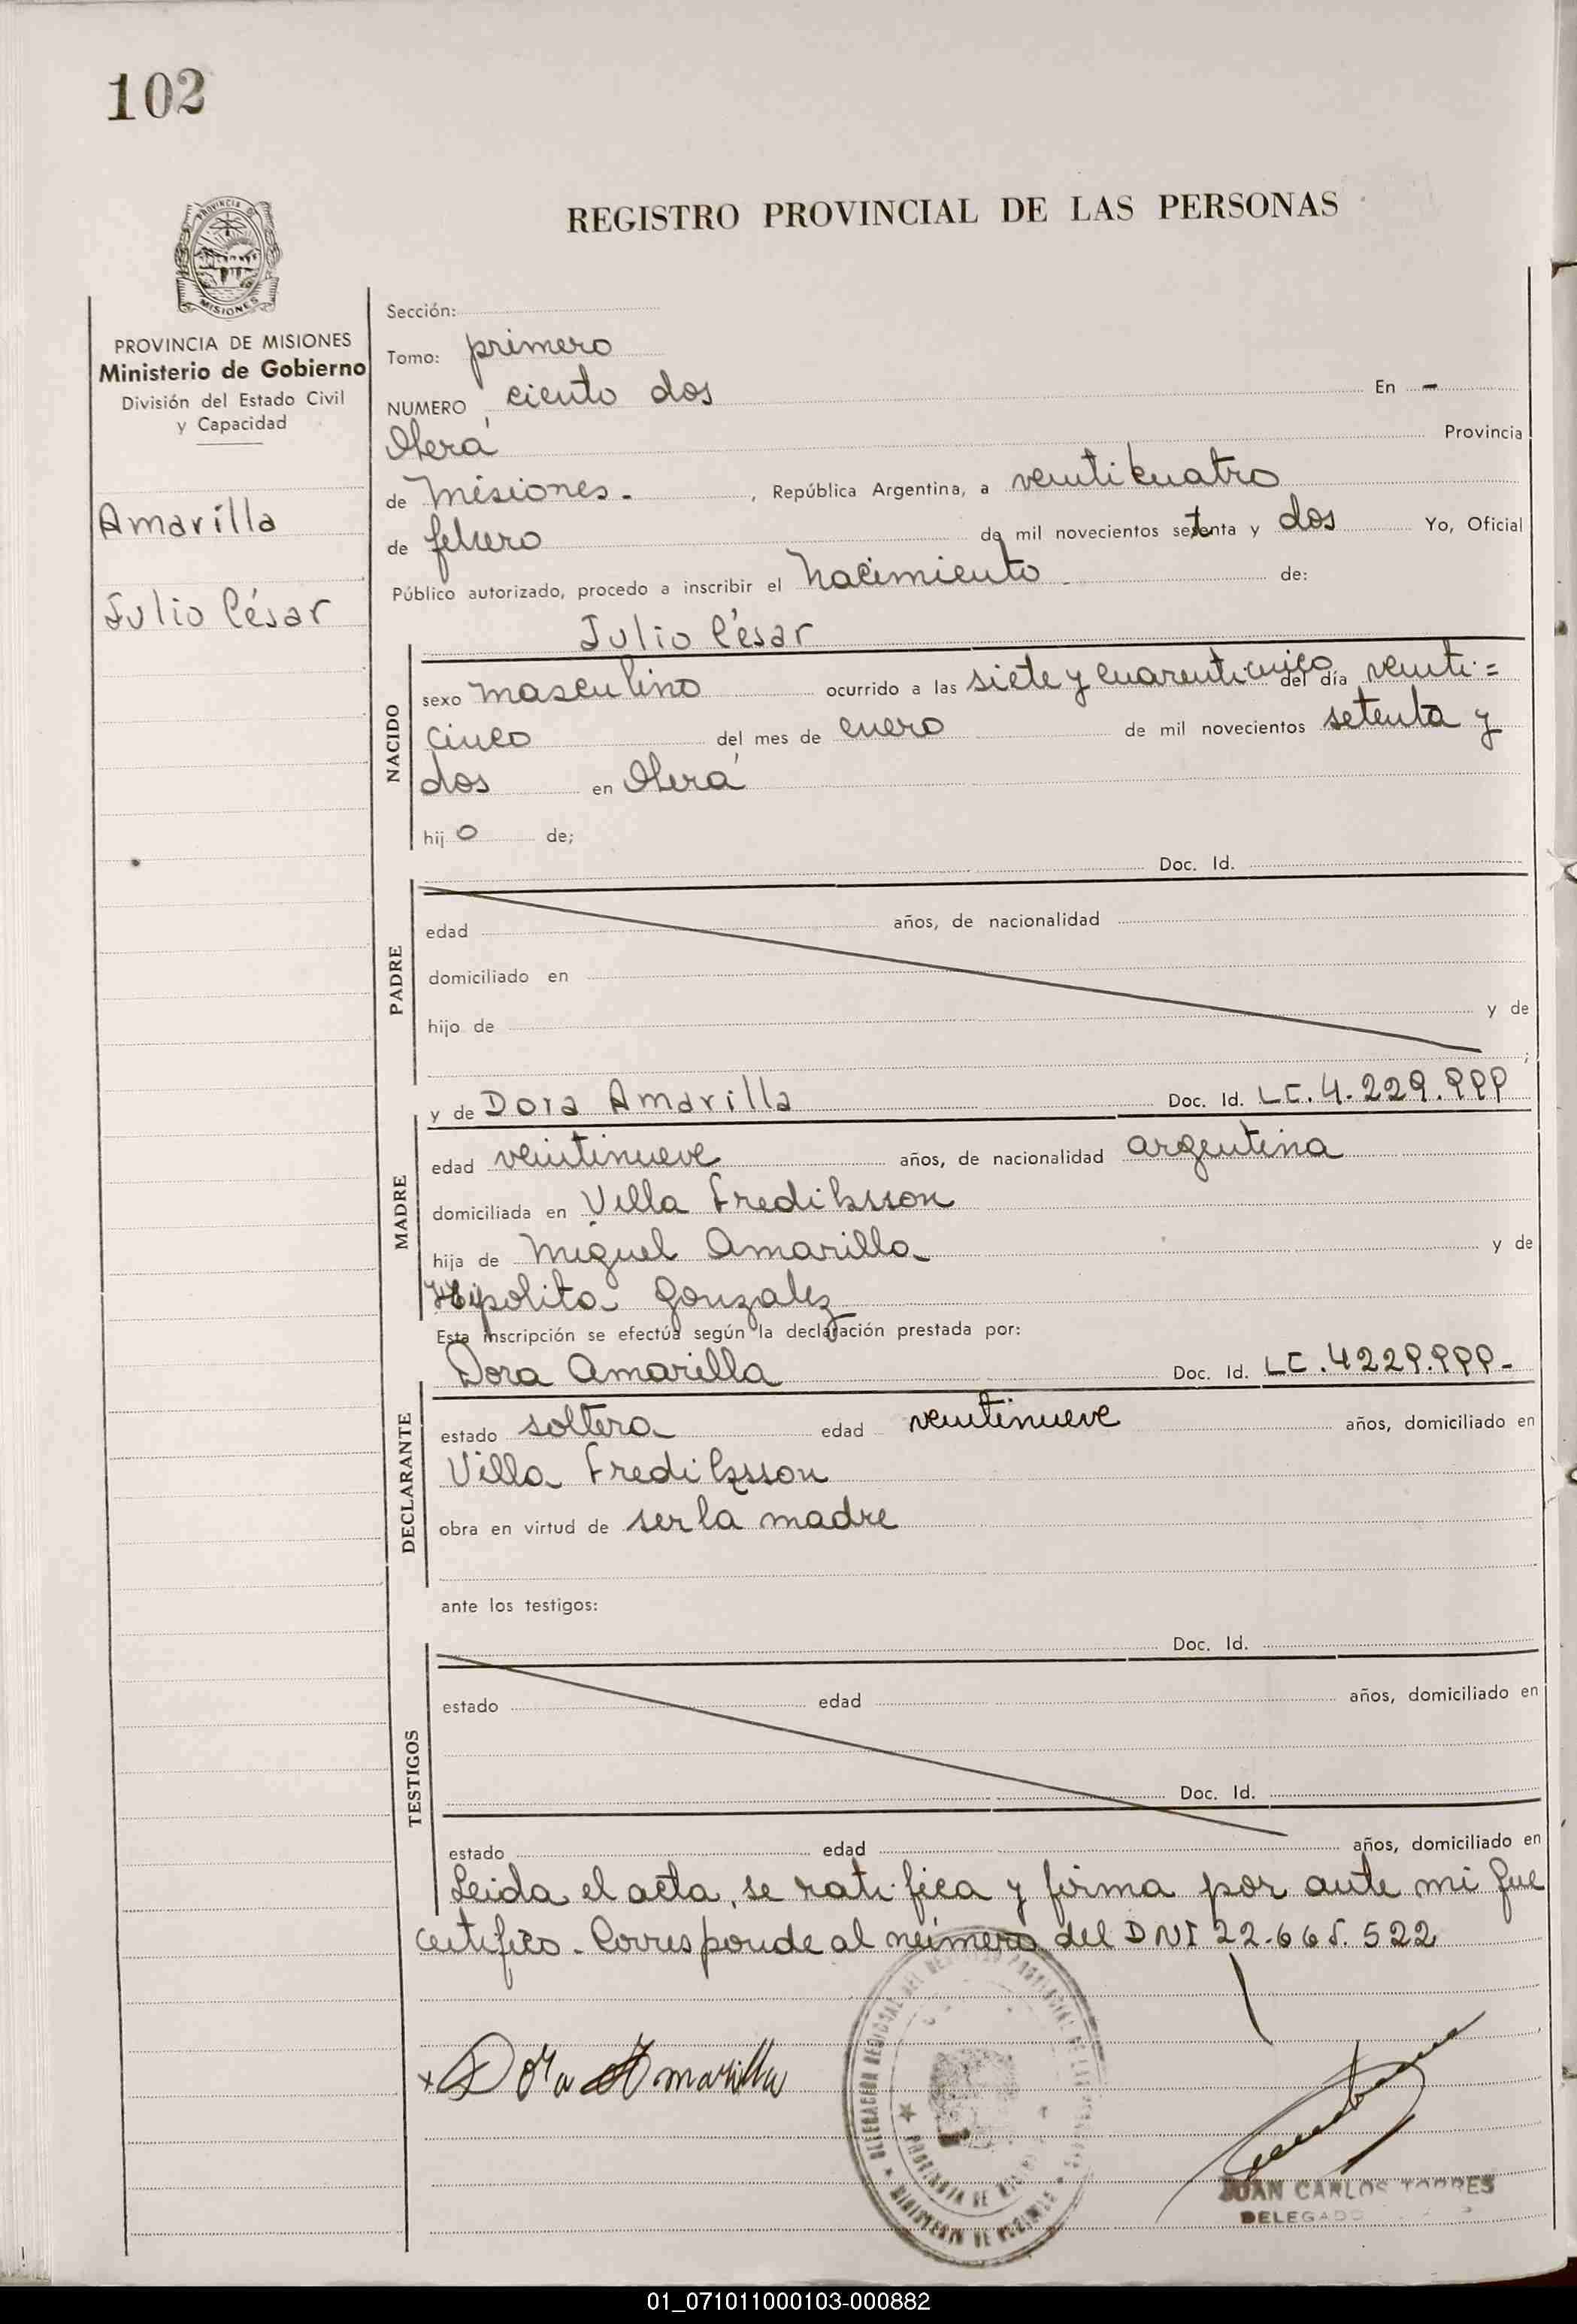 102
REGISTRO PROVINCIAL DE LAS PERSONAS
PROVINCIA DE MISIONES
Ministerio de Gobierno
División del Estado Civil
y Capacidad
Amarilla
Julio César
Sección:
Tomo: primero
NUMERO ciento dos En -
Oberá Provincia
de Misiones. , República Argentina, a veinticuatro
de febrero de mil novecientos setenta y dos Yo, Oficial
Público autorizado, procedo a inscribir el nacimiento de:
Julio César
NACIDO
sexo masculino ocurrido a las siete y cuarenticinco del día veinti=
cinco del mes de enero de mil novecientos setenta y
dos en Oberá
hijo de;
Doc. Id.
PADRE
edad años, de nacionalidad
domiciliado en
hijo de y de
;
MADRE
y de Dora Amarilla Doc. Id. LC. 4.229.999
edad veintinueve años, de nacionalidad argentina
domiciliada en Villa Frediksson
hija de Miguel Amarilla y de
Hipolita Gonzalez
Esta inscripción se efectúa según la declaración prestada por:
DECLARANTE
Dora Amarilla Doc. Id. LC. 4229.999-
estado soltera edad veintinueve años, domiciliado en
Villa Frediksson
obra en virtud de ser la madre
ante los testigos:
TESTIGOS
Doc. Id.
estado edad años, domiciliado en
Doc. Id.
estado edad años, domiciliado en
Leida el acta, se ratifica y firma por ante mi que
certifico. Corresponde al número del DNI 22.665.522
x Dora Amarilla
JUAN CARLOS TORRES
DELEGADO
01_071011000103-000882